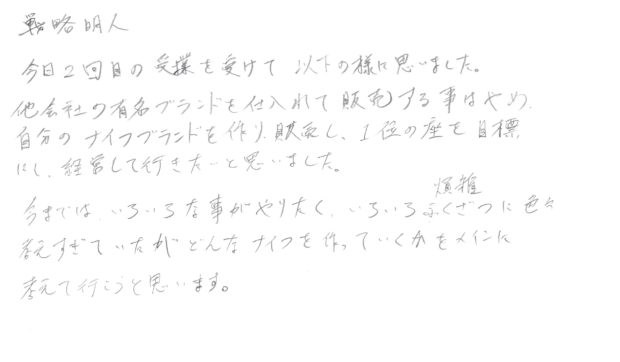 戦略明人
今日2回目の受業を受けて以下の様に思いました。
他会社の有名ブランドを仕入れて販売する事はやめ、
自分のナイフブランドを作り、販売し、1位の座を目標
にし、経営して行きたいと思いました。
煩雑
今までは、いろいろな事がやりたく、いろいろふくざつに色々
考えすぎていたがどんなナイフを作っていくかをメインに
考えて行こうと思います。